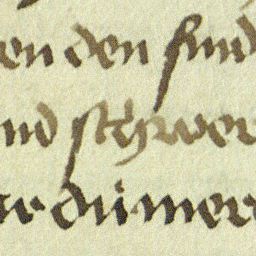 en den sind
nd schwer
ar dümer